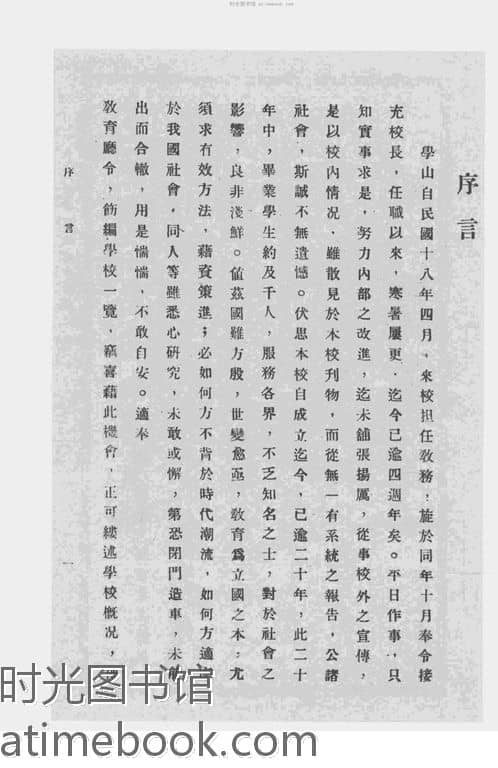 时光图书馆 atimebook.com
序言
學山自民國十八年四月、來校担任敎務；旋於同年十月奉令接
充校長，任職以來，寒暑屢更．迄今已逾四週年矣。平日作事，只
知實事求是，努力內部之改進，迄未鋪張揚厲，從事校外之宣傳，
是以校內情况．雖散見於本校刊物，而從無一有系統之報告，公諸
社會，斯誠不無遺憾。伏思本校自成立迄今，已逾二十年，此二十
年中，畢業學生約及千人，服務各界，不乏知名之士，對於社會之
影響，良非淺鮮。値茲國難方殷，世變愈亟，敎育爲立國之本，尤
須求有效方法，藉資策進；必如何方不背於時代潮流，如何方適
於我國社會，同人等雖悉心研究，未敢或懈，第恐閉門造車，未
出而合轍，用是惴惴，不敢自安。適奉
敎育廳令，飭編學校一覽，竊喜藉此機會，正可縷述學校槪况，
序言
一
时光图书馆
atimebook.com